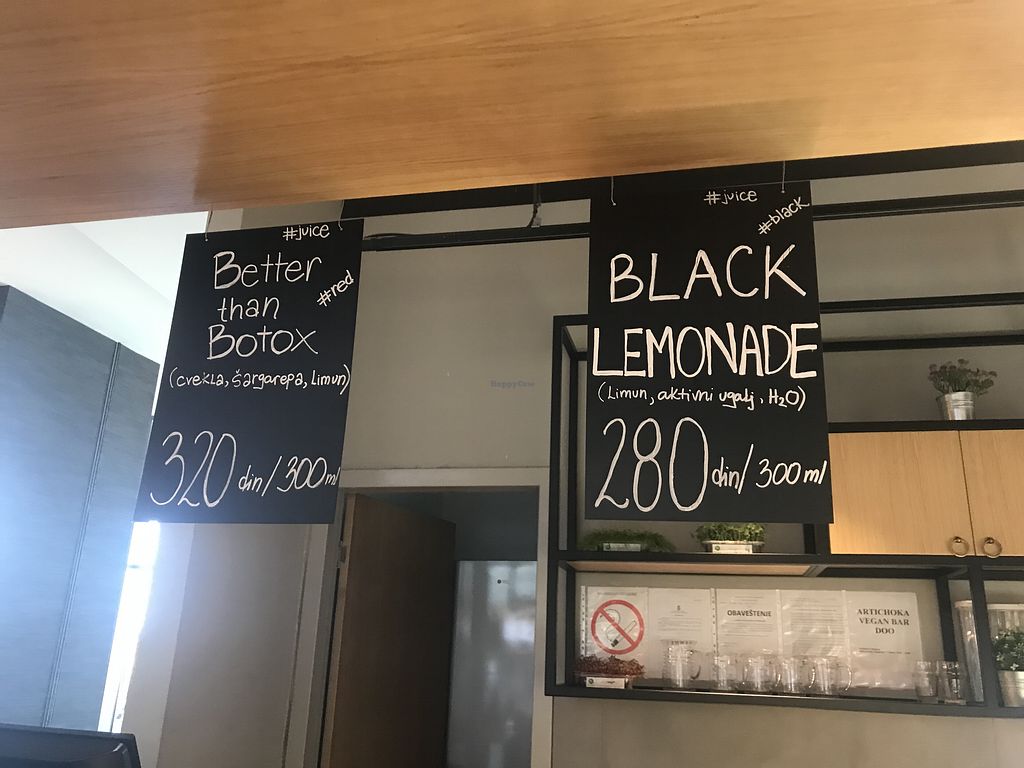 #juice
Better
#red
than
Botox
(cvekla, šargarepa, Limun)
320 din/300 ml
#juice
#black
BLACK
LEMONADE
(Limun, aktivni ugalj, H₂O)
280 din/ 300 ml
HappyCow
OBAVEŠTENJE
ARTICHOKA
VEGAN BAR
DOO